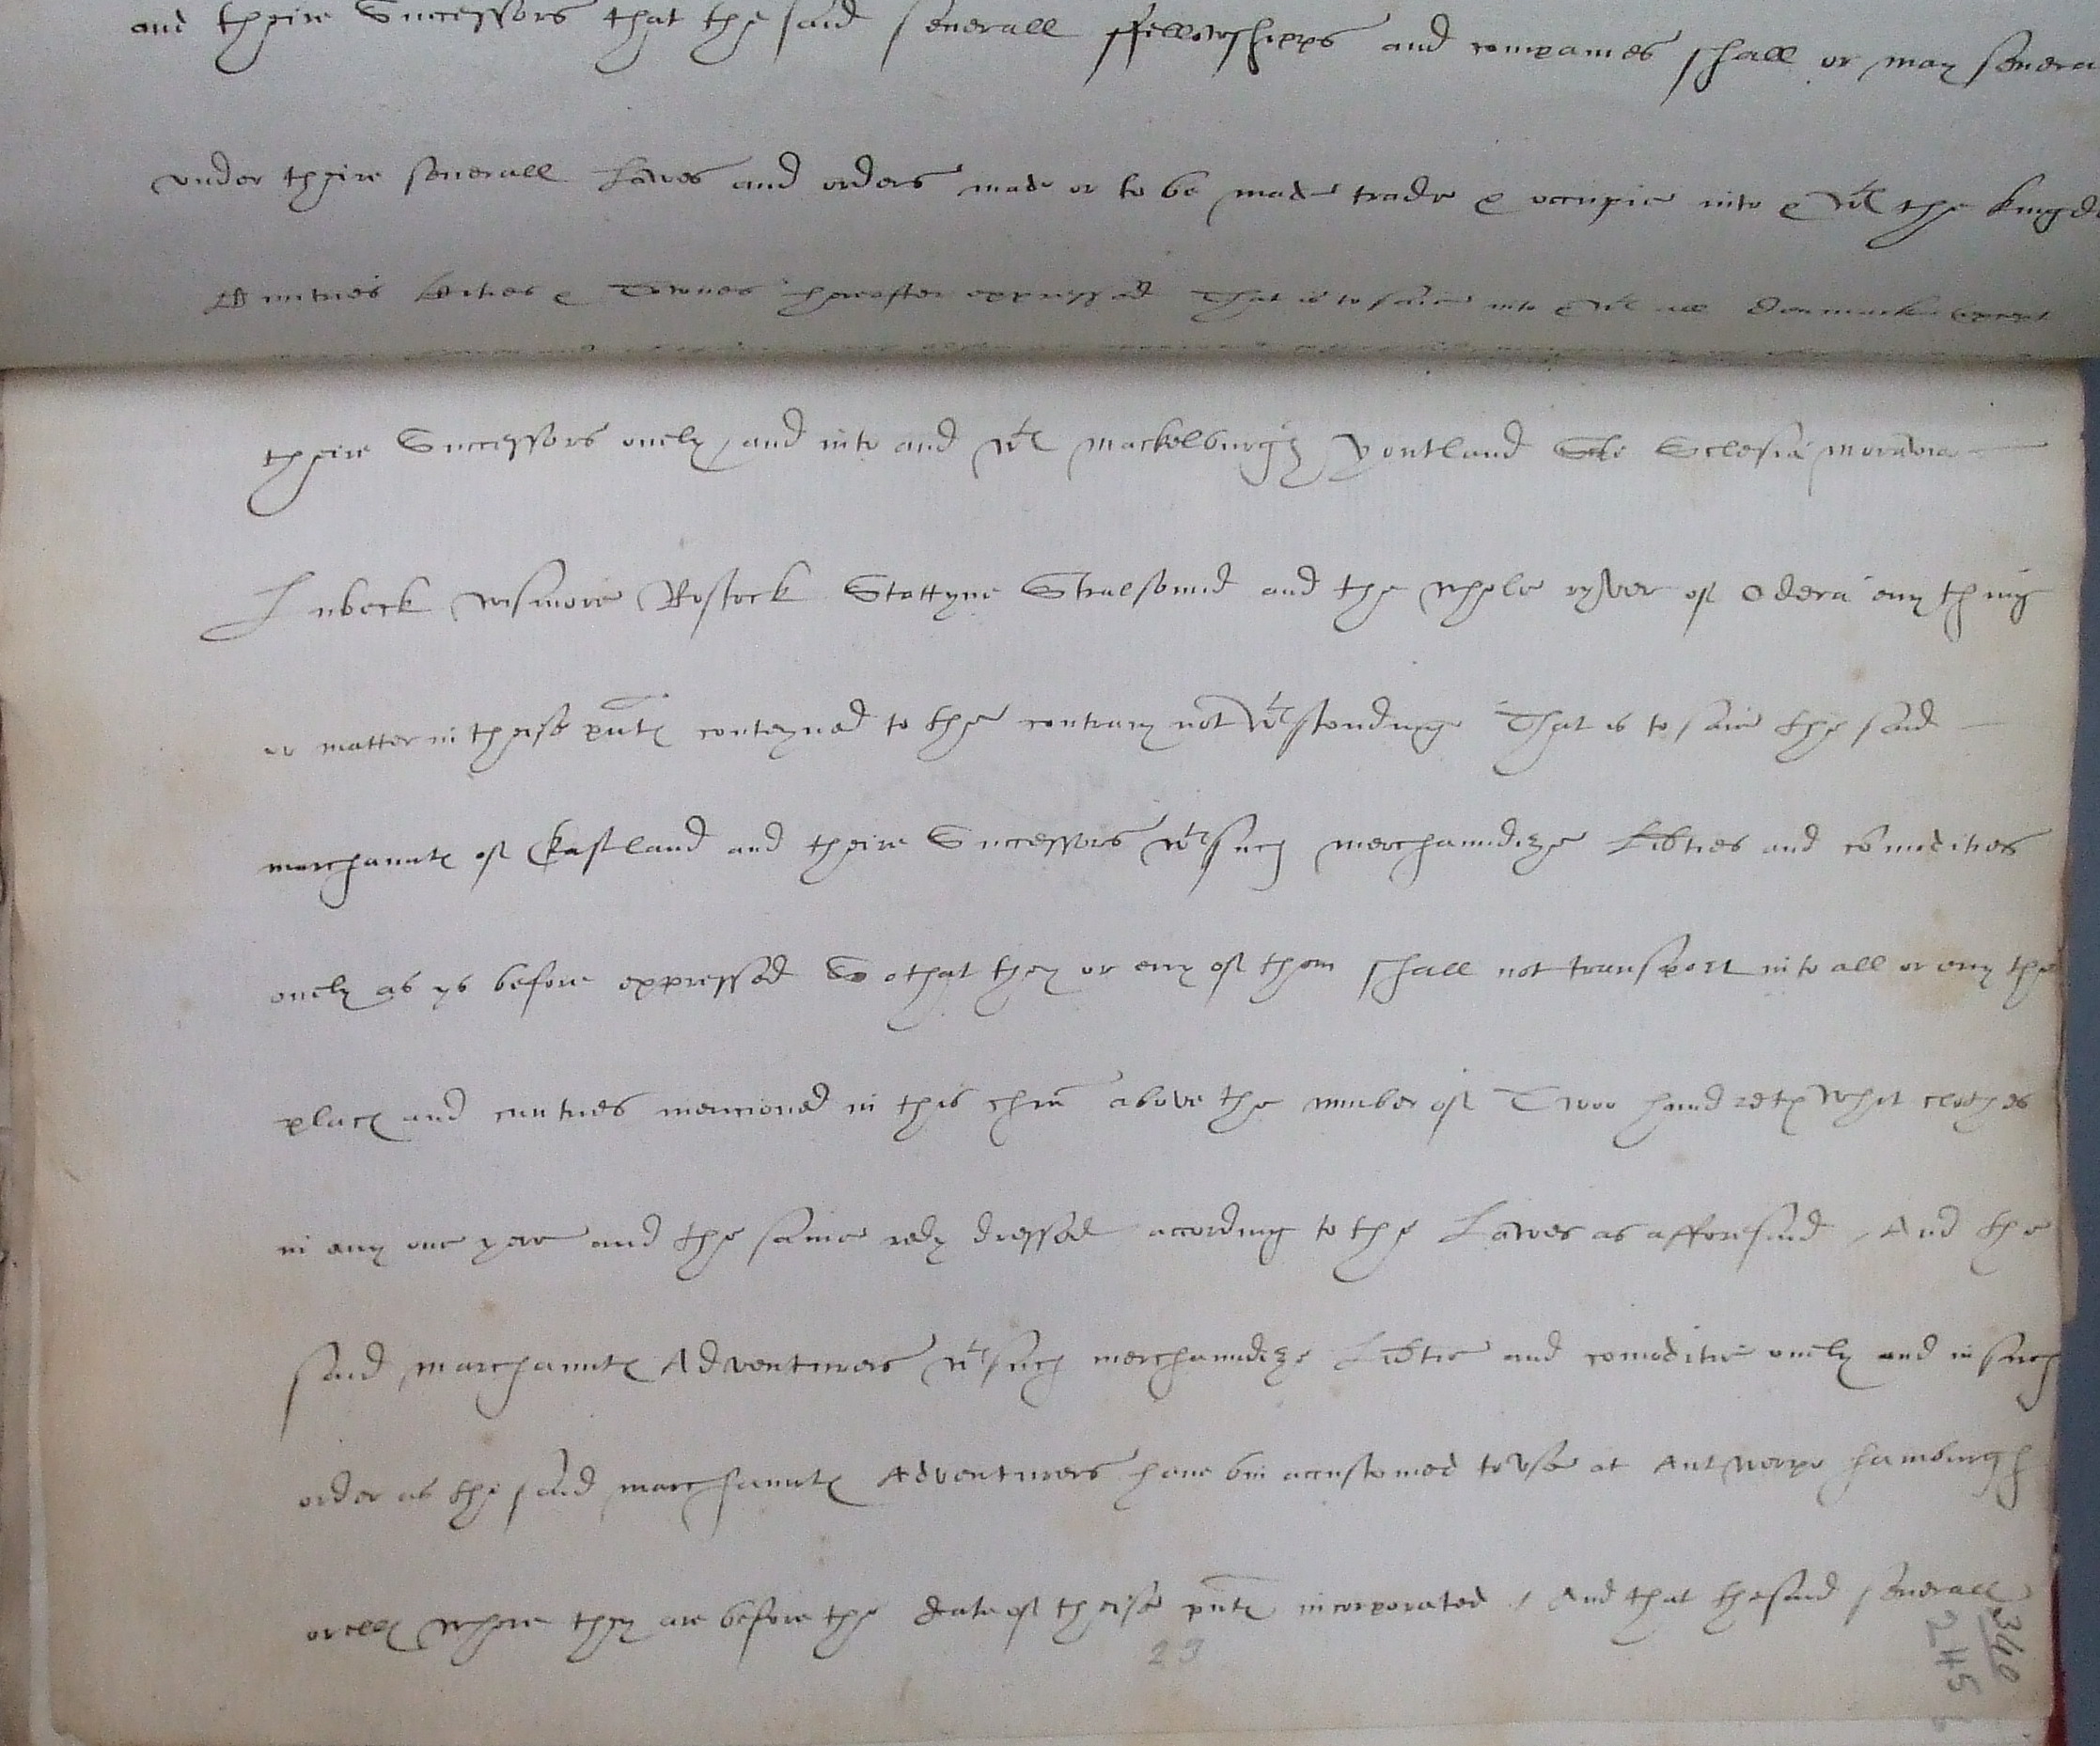 and theire Successors that the said seuerall ffellowshipps and companies shall or may seuera
vnder theire seuerall Lawes and orders made or to be made trade & occupie into & wth the kingdo
Cuntries Citties & Townes hereafter expressed That is to saie into & wth all Denmarke except
theire Successors onely / and into and wth Mackelburgh Pontland Sle Sclesia Moravia
Lubeck Wismore Rostock Stettyne Stralsound and the whole ryver of Odera any thing
or matter in theise pnts conteyned to the contrary notwthstandinge That is to saie the said
marchaunts of Eastland and theire Successors wth such merchaundize Libties and comodities
onely as ys before expressed So that they or any of them shall not transport into all or any the
places and cuntries mencioned in this chre above the number of Twoo hundreth whit clothes
in any one yere and the same redy dressed according to the Lawes as afforesaid / And the
said marchaunts Adventurers wth such merchaundize Libtie and comoditie onely and in such
order as the said marchaunts Adventurers haue bin accustomed to vse at Antwerpe Hamburgh
or ells where they are before the date of theise pnts incorporated / And that the said seuerall
23
340
245